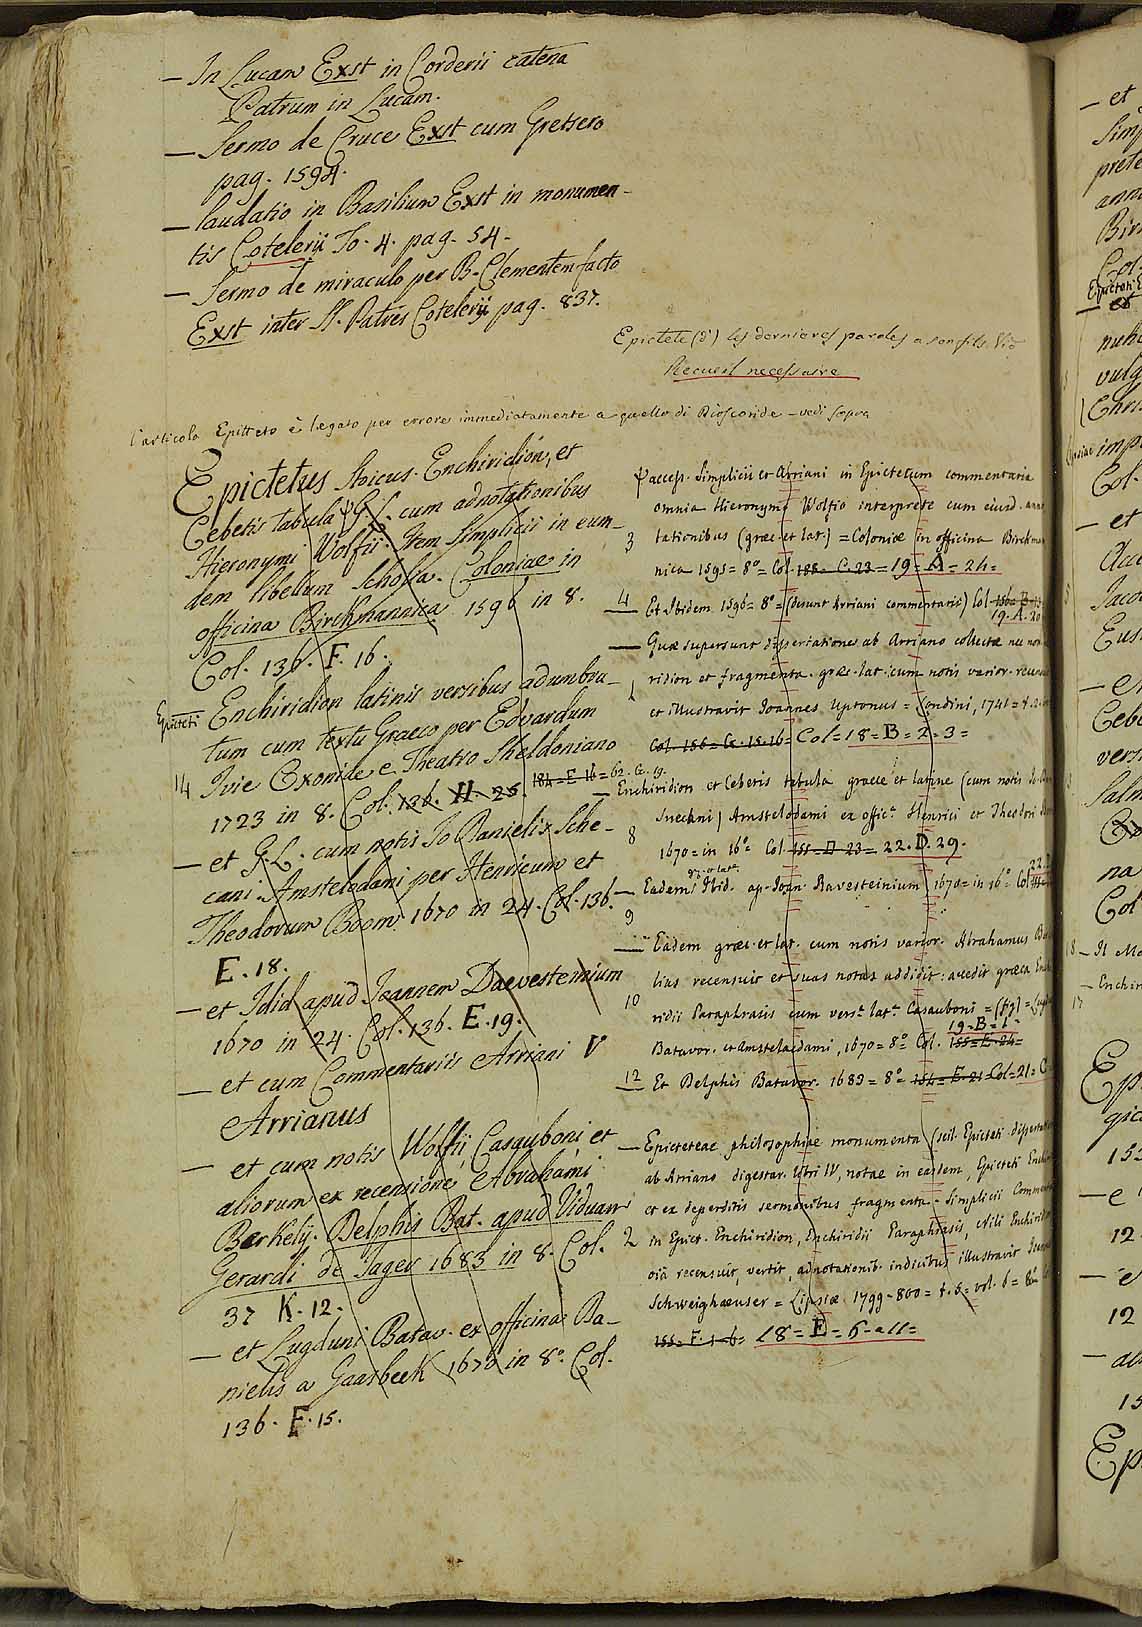 — In Lucam Exst in Corderii catena
Patrum in Lucam.
— Sermo de Cruce Exst cum Gretsero
pag. 1594.
— laudatio in Basilium Exst in monumen-
tis Cotelerij To. 4. pag. 54.
— Sermo de miraculo per B. Clementem facto
Exst inter SS. Patres Cotelerij pag. 837.
Epictete (d') les dernieres paroles a son fils. Vid
Recueil necessaire
L'articolo Epitteto è legato per errore immediatamente a quello di Dioscoride – vedi sopra
Epictetus Stoicus. Enchiridion, et
Cebetis tabula G. L. cum adnotationibus
Hieronymi Wolfii. Item Simplicii in eun-
dem libellum Scholia. Coloniae in
officina Birckmannica 1596 in 8.
Col. 136. F. 16.
Epicteti Enchiridion latinis versibus adumbra-
tum cum textu Graeco per Edvardum
14 Ivie Oxoniae e Theatro Sheldoniano
1723 in 8. Col. 136. H. 25. 184=E 16= 62. G. 19.
— et G. L. cum notis Jo Danielis Sche-
cani. Amstelodami per Henricum et
Theodorum Boom 1670 in 24. Col. 136.
E. 18.
— et Idid apud Joannem Daevesteinium
1670 in 24. Col. 136. E. 19.
— et cum Commentariis Arriani V
Arrianus
— et cum notis Wolfij, Casauboni et
aliorum ex recensione Abrahami
Berkelij. Delphis Bat. apud Viduam
Gerardi de Jager 1683 in 8. Col.
37 K. 12.
— et Lugduni Batav. ex officina Da-
nielis a Gaasbeek 1673 in 8º. Col.
136. F. 15.
access. Simplicii et Arriani in Epictetum commentaria
omnia Hieronymo Wolfio interprete cum eiusd. anno
3 tationibus (græc. et lat.) = Coloniæ in officina Birckman
nica 1595= 8º= Col. 155= C. 23 = 19= A= 24=
4 Et Ibidem 1596= 8º= (desunt Arriani commentarii) Col
19. A. 20
— Quæ supersunt dissertationes ab Arriano collectæ nec non
1 ridion et fragmenta. græc. lat. cum notis varior. recensuit
et illustravit Joannes Uptonus = Londini, 1741 =
Col. 156= G. 15. 16= Col= 18= B= 2= 3=
— Enchiridion et Cebetis tabula graece et latine (cum notis
Snecani) Amstelodami ex offic.ª Henrici et Theodori
8 1670= in 16º= Col. 155= D 23= 22. D. 29.
gr. et lat.
— Eadem Ibid. ap. Joan. Ravesteinium 1670= in 16º= Col 22.
9
— Eadem græc. et lat. cum notis varior. Abrahamus Ber
lius recensuit et suas notas addidit: accedit græca Enchi
10 ridii Paraphrasis cum vers.ª lat.ª Casauboni = (fig) = Lugd
19= B= 1.
Batavor. et Amstelædami, 1670= 8º= Col. 155= E. 24=
12 Et Delphis Batavor. 1683= 8º= 154= E. 21 Col= 21=
— Epicteteae philosophiae monumenta (scil. Epicteti dissertat
ab Arriano digestar. libri IV, notae in easdem, Epicteti Enchi
et ex deperditis sermonibus fragmenta. Simplicii Comment
2 in Epict. Enchiridion, Enchiridii Paraphrasis, Nili Enchiridion
oia recensuit, vertit, adnotationib. indicibus illustravit
Schweighæuser = Lipsiæ 1799=800= t. 5= vol. 6= 8º
155= F. 1. 6= 18= E= 6=all=